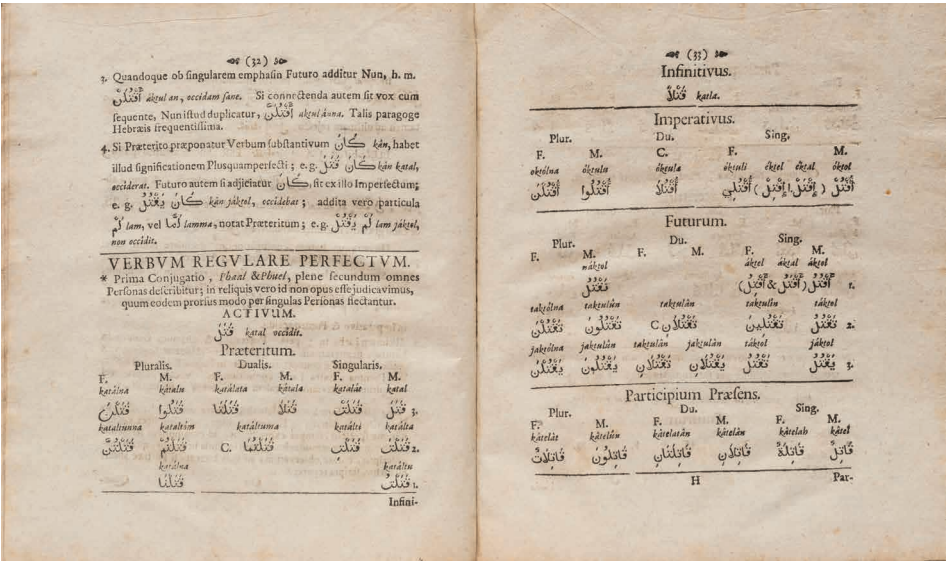 (32)
3. Quandoque ob singularem emphasin Futuro additur Nun, h. m.
أَقْتُلَنْ áktul an, occidam sane. Si connectenda autem sit vox cum
sequente, Nun istud duplicatur, أَقْتُلَنَّ aktulánna. Talis paragoge
Hebræis frequentissima.
4. Si Præterito præponatur Verbum substantivum كَانَ kân, habet
illud significationem Plusquamperfecti; e.g. كَانَ قَتَلَ kân katal,
occiderat. Futuro autem si adjiciatur كَانَ, fit ex illo Imperfectum;
e. g. كَانَ يَقْتُلُ kân jáktol, occidebat; addita vero particula
لَمْ lam, vel لَمَّا lamma, notat Præteritum; e.g. لَمْ يَقْتُلْ lam jáktol,
non occidit.
VERBVM REGVLARE PERFECTVM.
* Prima Conjugatio, Phaal & Phuel, plene secundum omnes
Personas describitur; in reliquis vero id non opus esse judicavimus,
quum eodem prorsus modo per singulas Personas flectantur.
ACTIVUM.
قَتَلَ katal occidit.
Præteritum.
Pluralis. Dualis. Singularis.
F. M. F. M. F. M.
katálna katalu katálata kátala katalát katal
قَتَلْنَ قَتَلُوا قَتَلَتَا قَتَلَا قَتَلَتْ قَتَلَ 3.
kataltúnna kataltóm katáltuma katálti katálta
قَتَلْتُنَّ قَتَلْتُمْ C. قَتَلْتُمَا قَتَلْتِ قَتَلْتَ 2.
katálna katáltu
قَتَلْنَا قَتَلْتُ 1.
Infini-
(33)
Infinitivus.
قَتْلًا katla.
Imperativus.
Plur. Du. Sing.
F. M. C. F. M.
öktólna öktulu öktula öktuli éktel éktal öktol
أُقْتُلْنَ أُقْتُلُوا أُقْتُلَا أُقْتُلِي (إِقْتِلْ إِقْتَلْ) أُقْتُلْ
Futurum.
Plur. Du. Sing.
F. M. F. M. F. M.
náktol áktel áktal áktol
نَقْتُلُ (أَقْتِلُ & أَقْتَلُ) أَقْتُلُ 1.
taktólna taktulûn taktulân taktulîn táktol
تَقْتُلْنَ تَقْتُلُونَ C تَقْتُلَانِ تَقْتُلِينَ تَقْتُلُ 2.
jaktólna jaktulûn taktulân jaktulân táktol jáktol
يَقْتُلْنَ يَقْتُلُونَ تَقْتُلَانِ يَقْتُلَانِ تَقْتُلُ يَقْتُلُ 3.
Participium Præsens.
Plur. Du. Sing.
F. M. F. M. F. M.
kâtelât kâtelûn kâtelatân kâtelân kâtelah kâtel
قَاتِلَاتٌ قَاتِلُونَ قَاتِلَتَانِ قَاتِلَانِ قَاتِلَةٌ قَاتِلٌ
H Par-